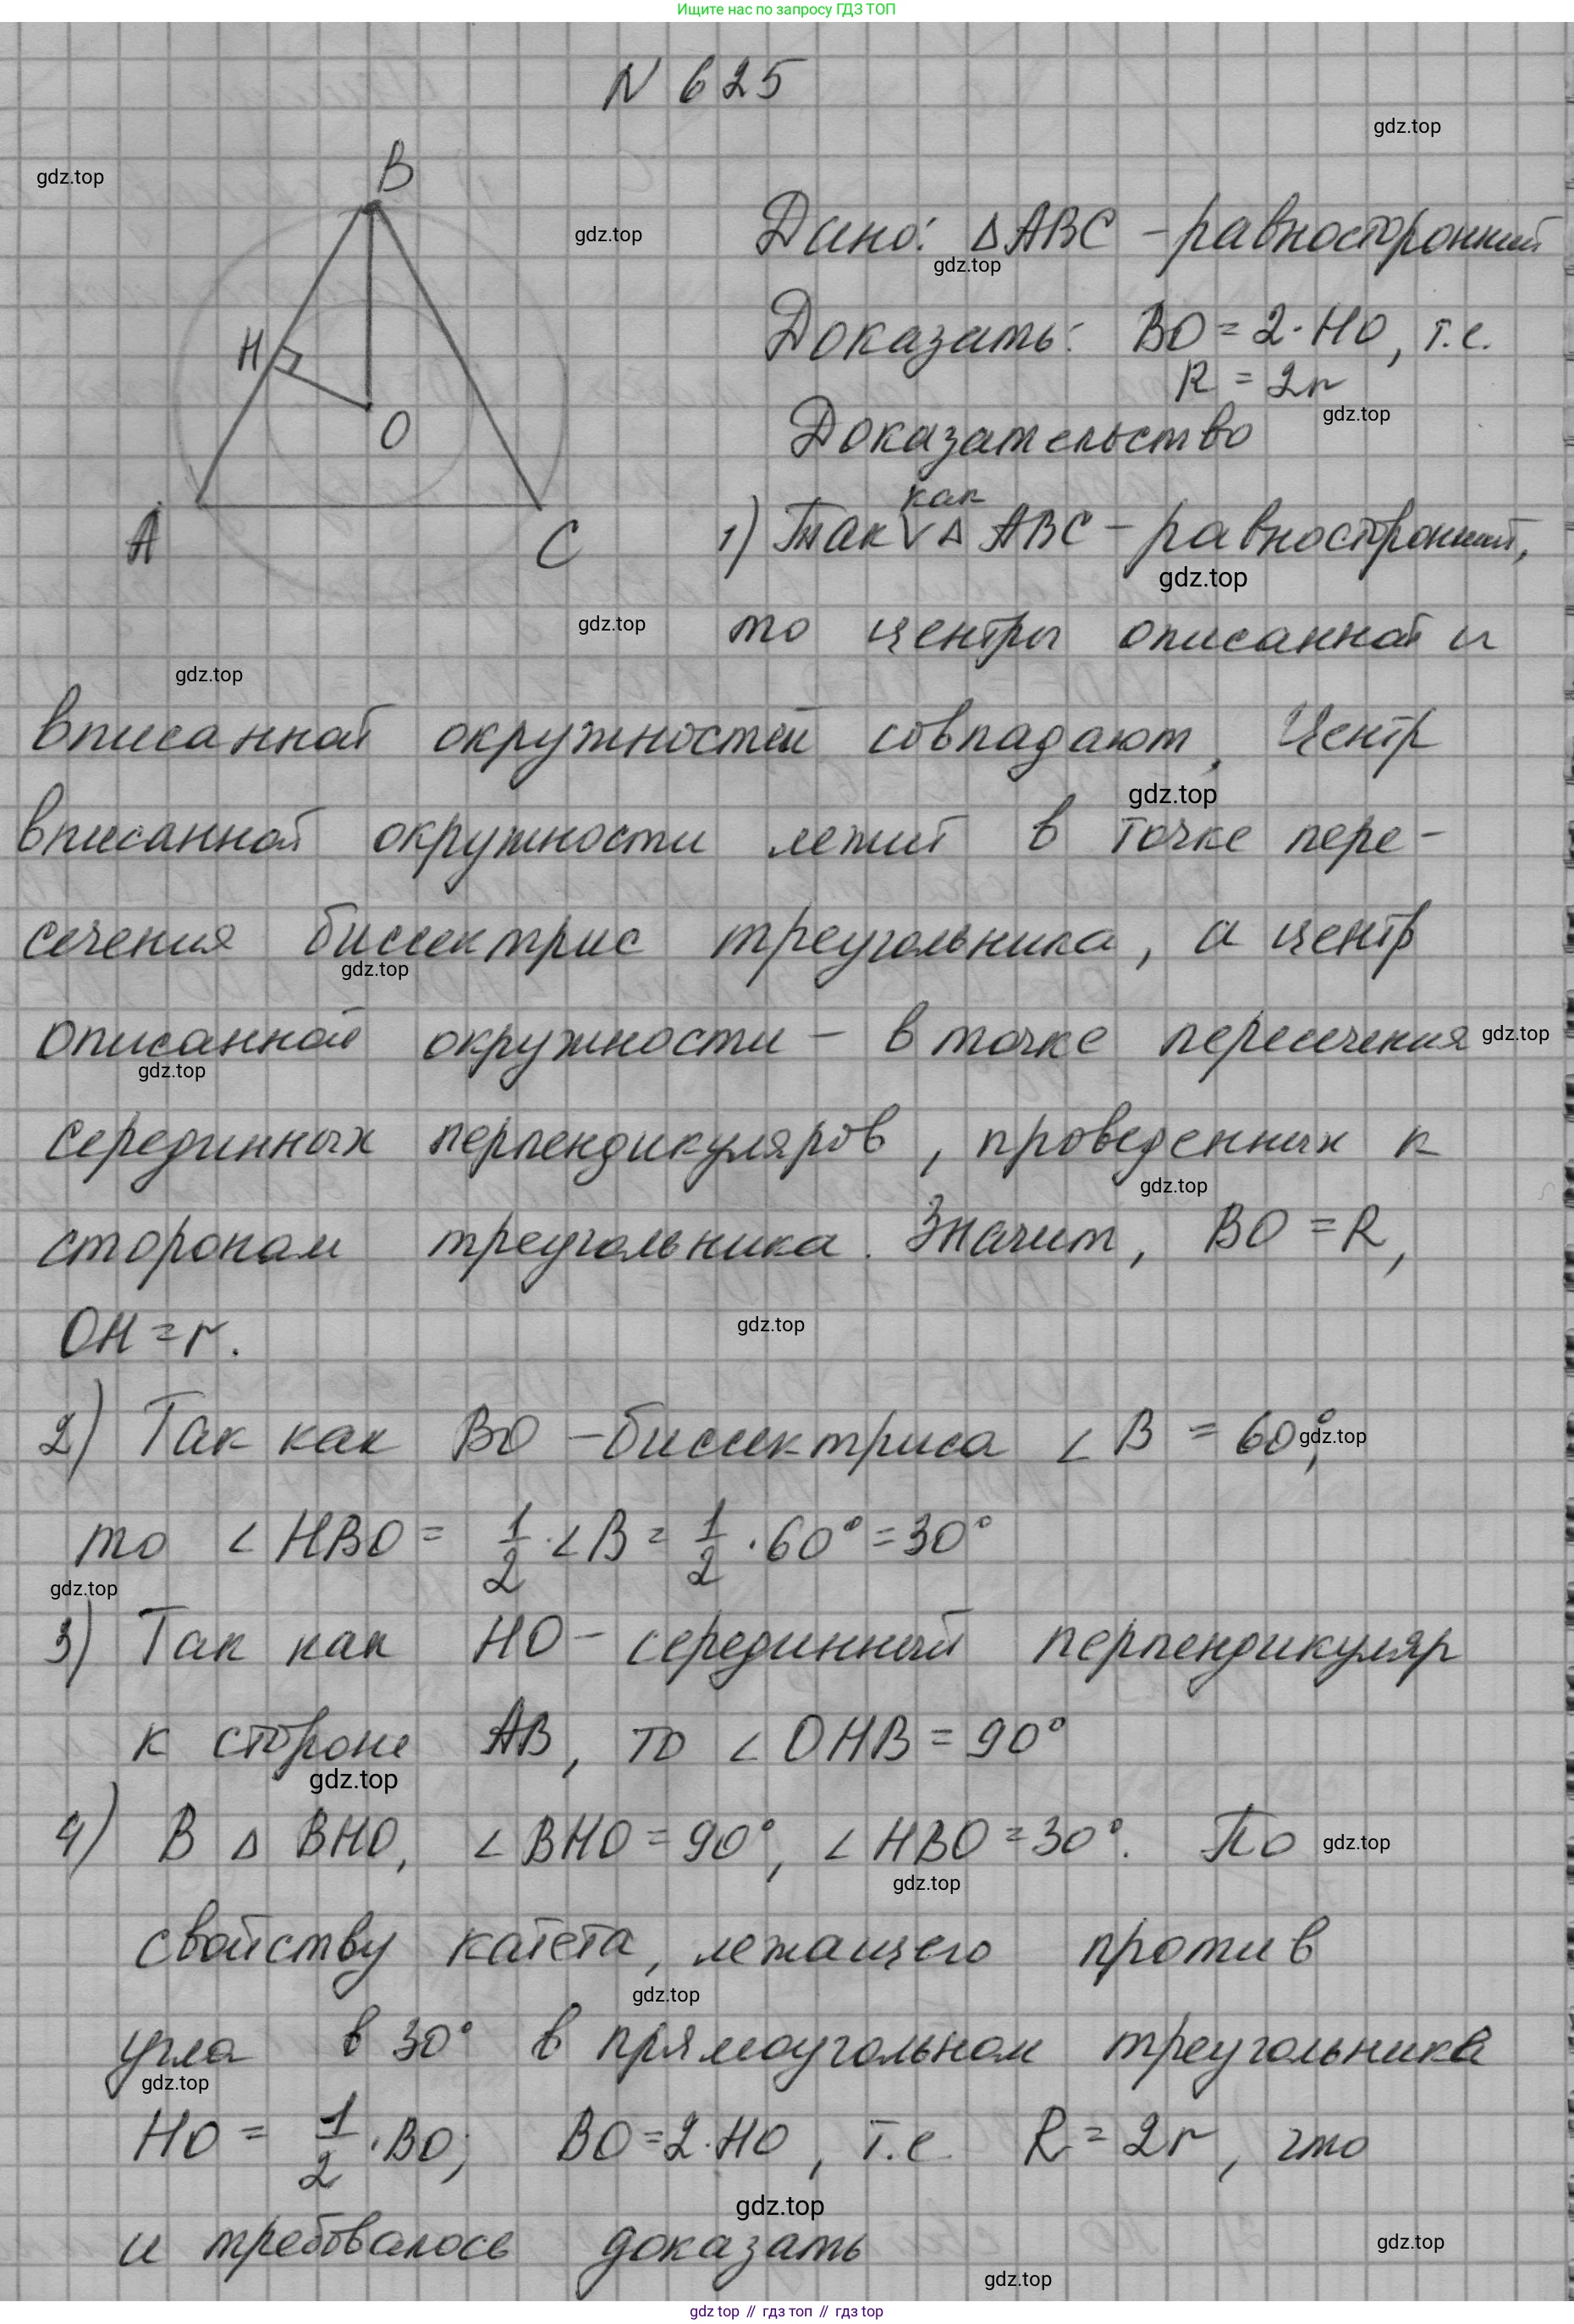 Ищите нас по запросу ГДЗ ТОП
N 625
gdz.top
gdz.top
B
gdz.top
Дано: Δ ABC - равносторонний
gdz.top
Доказать: BO = 2 · HO, т.е.
R = 2r
H
gdz.top
O
Доказательство
как
1) Так V Δ ABC - равносторонний,
A
C
gdz.top
gdz.top
то центры описанной и
gdz.top
вписанной окружностей совпадают. Центр
gdz.top
вписанной окружности лежит в точке пере-
сечения биссектрис треугольника, а центр
gdz.top
описанной окружности - в точке пересечения
gdz.top
gdz.top
серединных перпендикуляров, проведенных к
gdz.top
сторонам треугольника. Значит, BO = R,
gdz.top
OH = r.
2) Так как BO - биссектриса ∠ B = 60°,
gdz.top
то ∠ HBO = 1/2 · ∠ B = 1/2 · 60° = 30°
gdz.top
3) Так как HO - серединный перпендикуляр
к стороне AB, то ∠ OHB = 90°
gdz.top
4) В Δ BHO, ∠ BHO = 90°, ∠ HBO = 30°. По
gdz.top
gdz.top
свойству катета, лежащего против
gdz.top
угла в 30° в прямоугольном треугольника
gdz.top
HO = 1/2 · BO; BO = 2 · HO, т.е R = 2r, что
gdz.top
и требовалось доказать
gdz.top
gdz.top
gdz top // гдз топ // гдз top